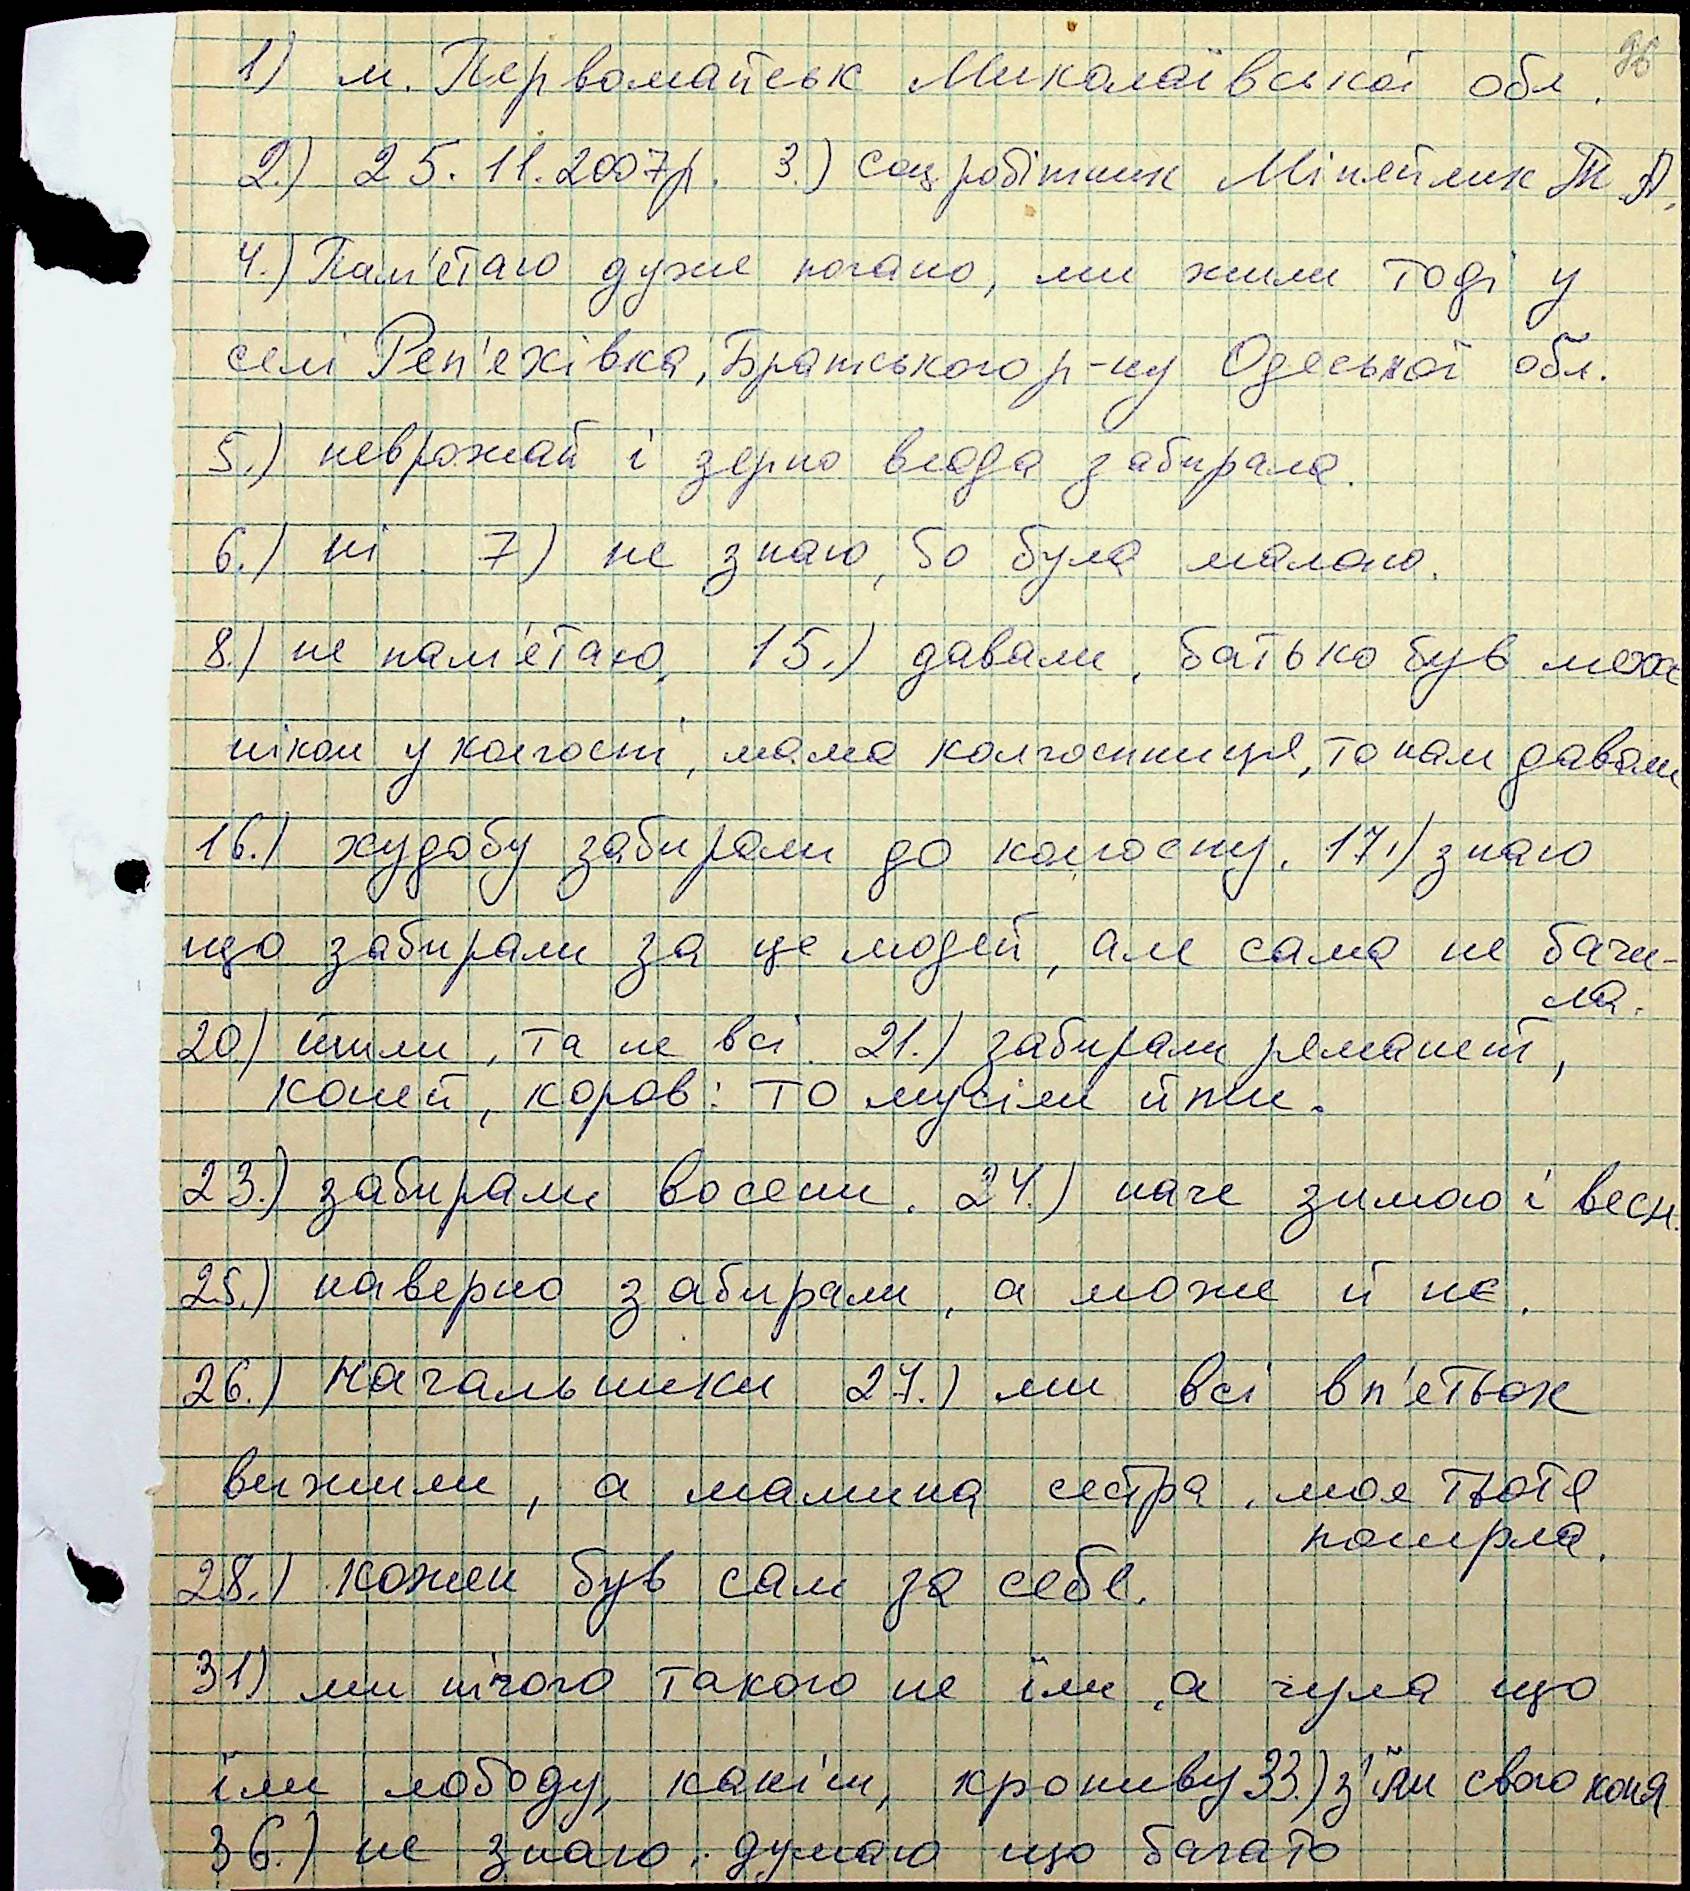 1) м. Первомайськ Миколаївської обл.
2.) 25.11.2007р. 3.) соц.робітник Т А.
4.) Пам'ятаю дуже погано, ми жили тоді у
селі Реп'яхівка, Братського р-ну Одеської обл.
5.) неврожай і зерно влада забирала.
6.) ні. 7) не знаю, бо була малою.
8.) не пам'ятаю, 15.) давали, батько був меха
ніком у колгоспі, мама колгоспниця, то нам давали
16.) худобу забирали до колгоспу. 17.) знаю
що забирали за це людей, але сама не бачи-
ла.
20) йшли, та не всі. 21.) забирали реманент,
коней, коров: то мусіли йти.
23.) забирали восени. 24.) наче зимою і весн.
25.) наверно забирали, а може й нє.
26.) начальники 27.) ми всі вп'ятьох
вижили, а мамина сестра, моя тьотя
померла.
28.) кожен був сам за себе.
31) ми нічого такого не їли, а чула що
їли лободу, кропиву 33.) з'їли свого коня
36.) не знаю, думаю що багато